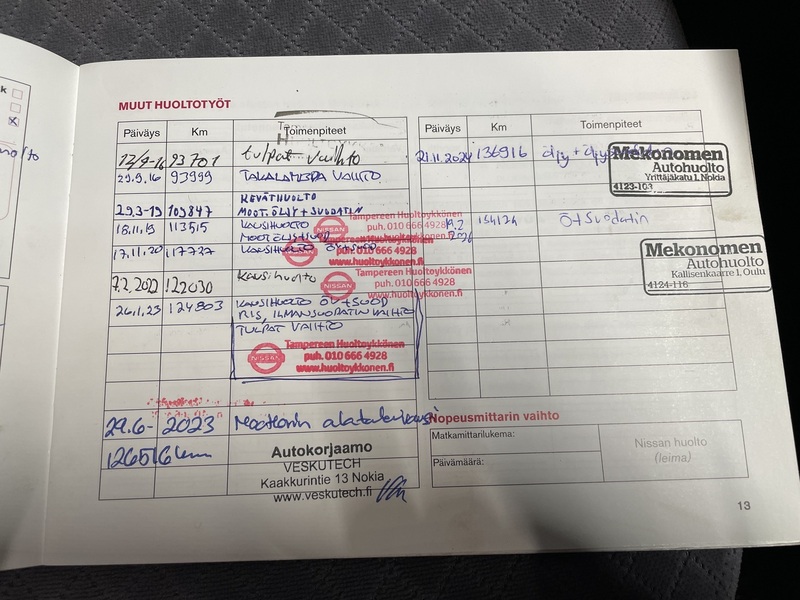 MUUT HUOLTOTYÖT
Päiväys Km Toimenpiteet
12/9-16 93701 tulpat vaihto
29.9.16 93999 TAKALAMPPU VAIHTO
KEVÄTHUOLTO
29.3-19 109847 MOOT.ÖLJY+SUODATIN
18.11.19 113515 KAUSIHUOLTO
Tampereen Huoltoykkönen
puh. 010 666 4928
NISSAN
17.11.20 117727 KAUSIHUOLTO
Tampereen Huoltoykkönen
puh. 010 666 4928
www.huoltoykkonen.fi
7.2.2022 122030 Kausihuolto
Tampereen Huoltoykkönen
NISSAN puh. 010 666 4928
www.huoltoykkonen.fi
24.1.23 124803 KAUSIHUOLTO ÖV+SUOD
RIS, ILMANSUODATIN VAIHTO
TULPAT VAIHTO
Tampereen Huoltoykkönen
NISSAN puh. 010 666 4928
www.huoltoykkonen.fi
29.6- 2023 Moottorin
126516 km
Autokorjaamo
VESKUTECH
Kaakkurintie 13 Nokia
www.veskutech.fi
Päiväys Km Toimenpiteet
21.11.2024 136916 öljy +
Mekonomen
Autohuolto
Yrittäjäkatu 1, Nokia
4123-103
154124 Ö+Suodatin
Mekonomen
Autohuolto
Kallisenkaarre 1, Oulu
4124-116
Nopeusmittarin vaihto
Matkamittarilukema:
Päivämäärä:
Nissan huolto
(leima)
13